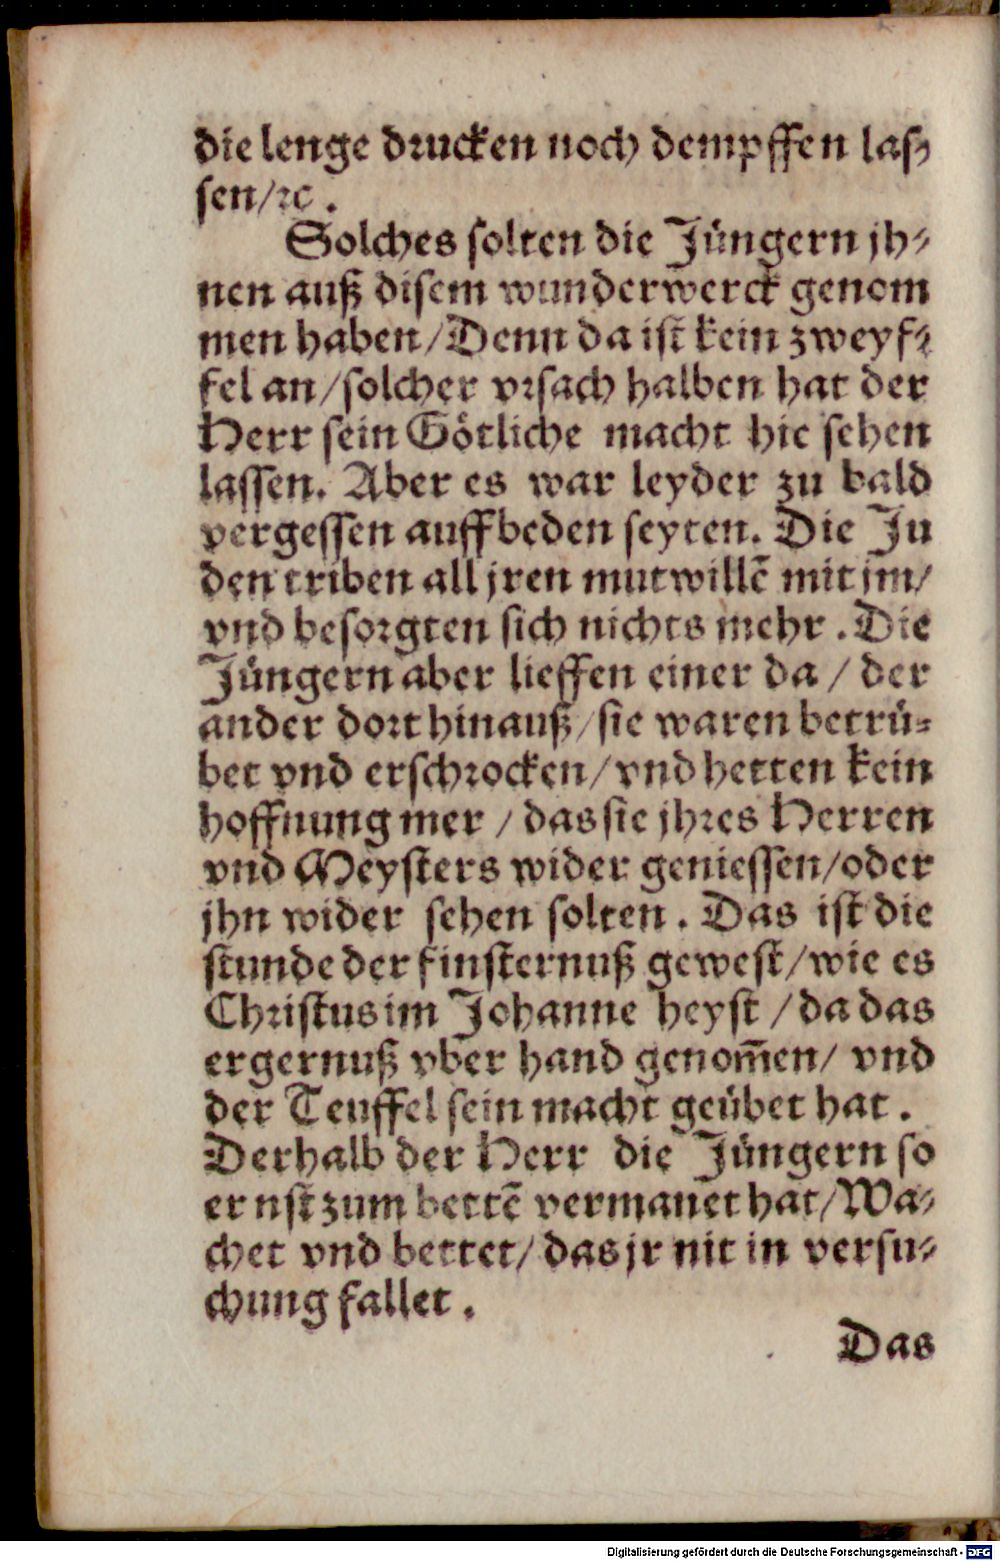 die lenge drucken noch dempffen las⸗
sen/ꝛc.
Solches solten die Jüngern jh⸗
nen auß disem wunderwerck genom
men haben/Denn da ist kein zweyf⸗
fel an/solcher vrsach halben hat der
Herr sein Götliche macht hie sehen
lassen. Aber es war leyder zu bald
vergessen auff beden seyten. Die Ju
den triben all jren mutwillē mit jm/
vnd besorgten sich nichts mehr. Die
Jüngern aber lieffen einer da / der
ander dort hinauß/sie waren betrü⸗
bet vnd erschrocken/vnd hetten kein
hoffnung mer / das sie jhres Herren
vnd Meysters wider geniessen/oder
jhn wider sehen solten. Das ist die
stunde der finsternuß gewest/wie es
Christus im Johanne heyst / da das
ergernuß vber hand genom̄en/ vnd
der Teuffel sein macht geübet hat.
Derhalb der Herr die Jüngern so
ernst zum bettē vermanet hat/Wa⸗
chet vnd bettet/ das jr nit in versu⸗
chung fallet.
Das
Digitalisierung gefördert durch die Deutsche Forschungsgemeinschaft - DFG